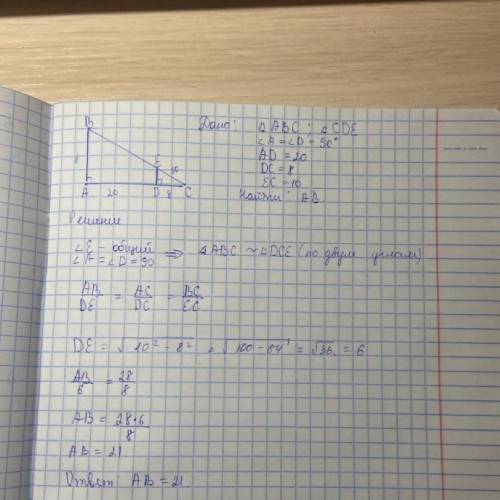 Дано: △ABC; △CDE
∠A = ∠D = 90°
AD = 20
DC = 8
EC = 10
Найти: AB
B
E
10
A
20
D
8
C
Решение
общий
∠A = ∠D = 90 ⇒ △ABC ~ △DCE (по двум углам)
AB/DE = AC/DC = BC/EC
DE = √10² - 8² = √100 - 64 = √36 = 6
AB/6 = 28/8
AB = 28·6/8
AB = 21
Ответ AB = 21